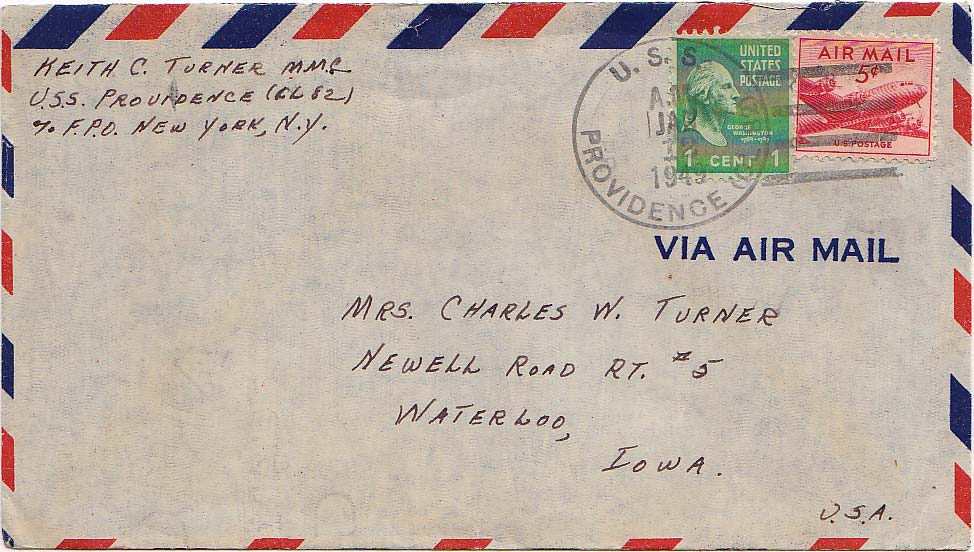 KEITH C. TURNER MMC
U.S.S. PROVIDENCE (CL82)
℅ F.P.O. NEW YORK, N.Y.
U.S.S.
JAN
PROVIDENCE
UNITED
STATES
POSTAGE
GEORGE
WASHINGTON
1 CENT 1
AIR MAIL
5¢
U.S. POSTAGE
VIA AIR MAIL
MRS. CHARLES W. TURNER
NEWELL ROAD RT. #5
WATERLOO,
IOWA.
U.S.A.